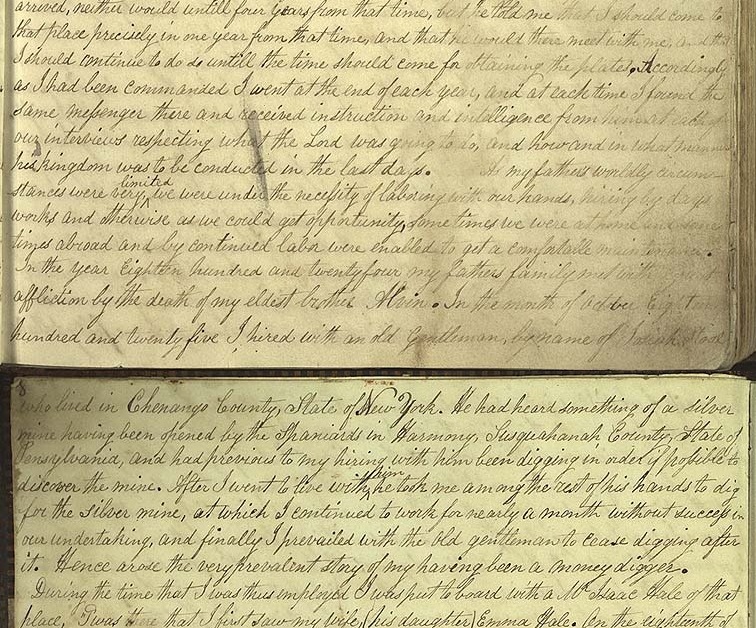 arrived, neither would untill four years from that time, but he told me that I should come to
that place precisely in one year from that time, and that he would there meet with me, and that
I should continue to do so untill the time should come for obtaining the plates. Accordingly
as I had been commanded I went at the end of each year, and at each time I found the
same messenger there and received instruction and intelligence from him at each of
our interviews respecting what the Lord was going to do, and how and in what manner
his kingdom was to be conducted in the last days. As my fathers worldly circum-
limited
stances were very we were under the necessity of laboring with our hands, hiring by days
works and otherwise as we could get opportunity, sometimes we were at home and some
times abroad and by continued labor were enabled to get a comfortable maintenance.
In the year Eighteen hundred and twenty four my fathers family met with
affliction by the death of my eldest brother Alvin. In the month of October Eighteen
hundred and twenty five I hired with an old Gentleman, by name of Josiah Stoal
8
who lived in Chenango County, State of New York. He had heard something of a silver
mine having been opened by the Spaniards in Harmony, Susquahanah County, State of
Pensylvania, and had previous to my hiring with him been digging in order if possible to
him
discover the mine. After I went to live with he took me among the rest of his hands to dig
for the silver mine, at which I continued to work for nearly a month without success in
our undertaking, and finally I prevailed with the old gentleman to cease digging after
it. Hence arose the very prevalent story of my having been a money digger.
During the time that I was thus employed I was put to board with a Mr Isaac Hale of that
place, Twas there that I first saw my wife, (his daughter) Emma Hale. On the eighteenth of